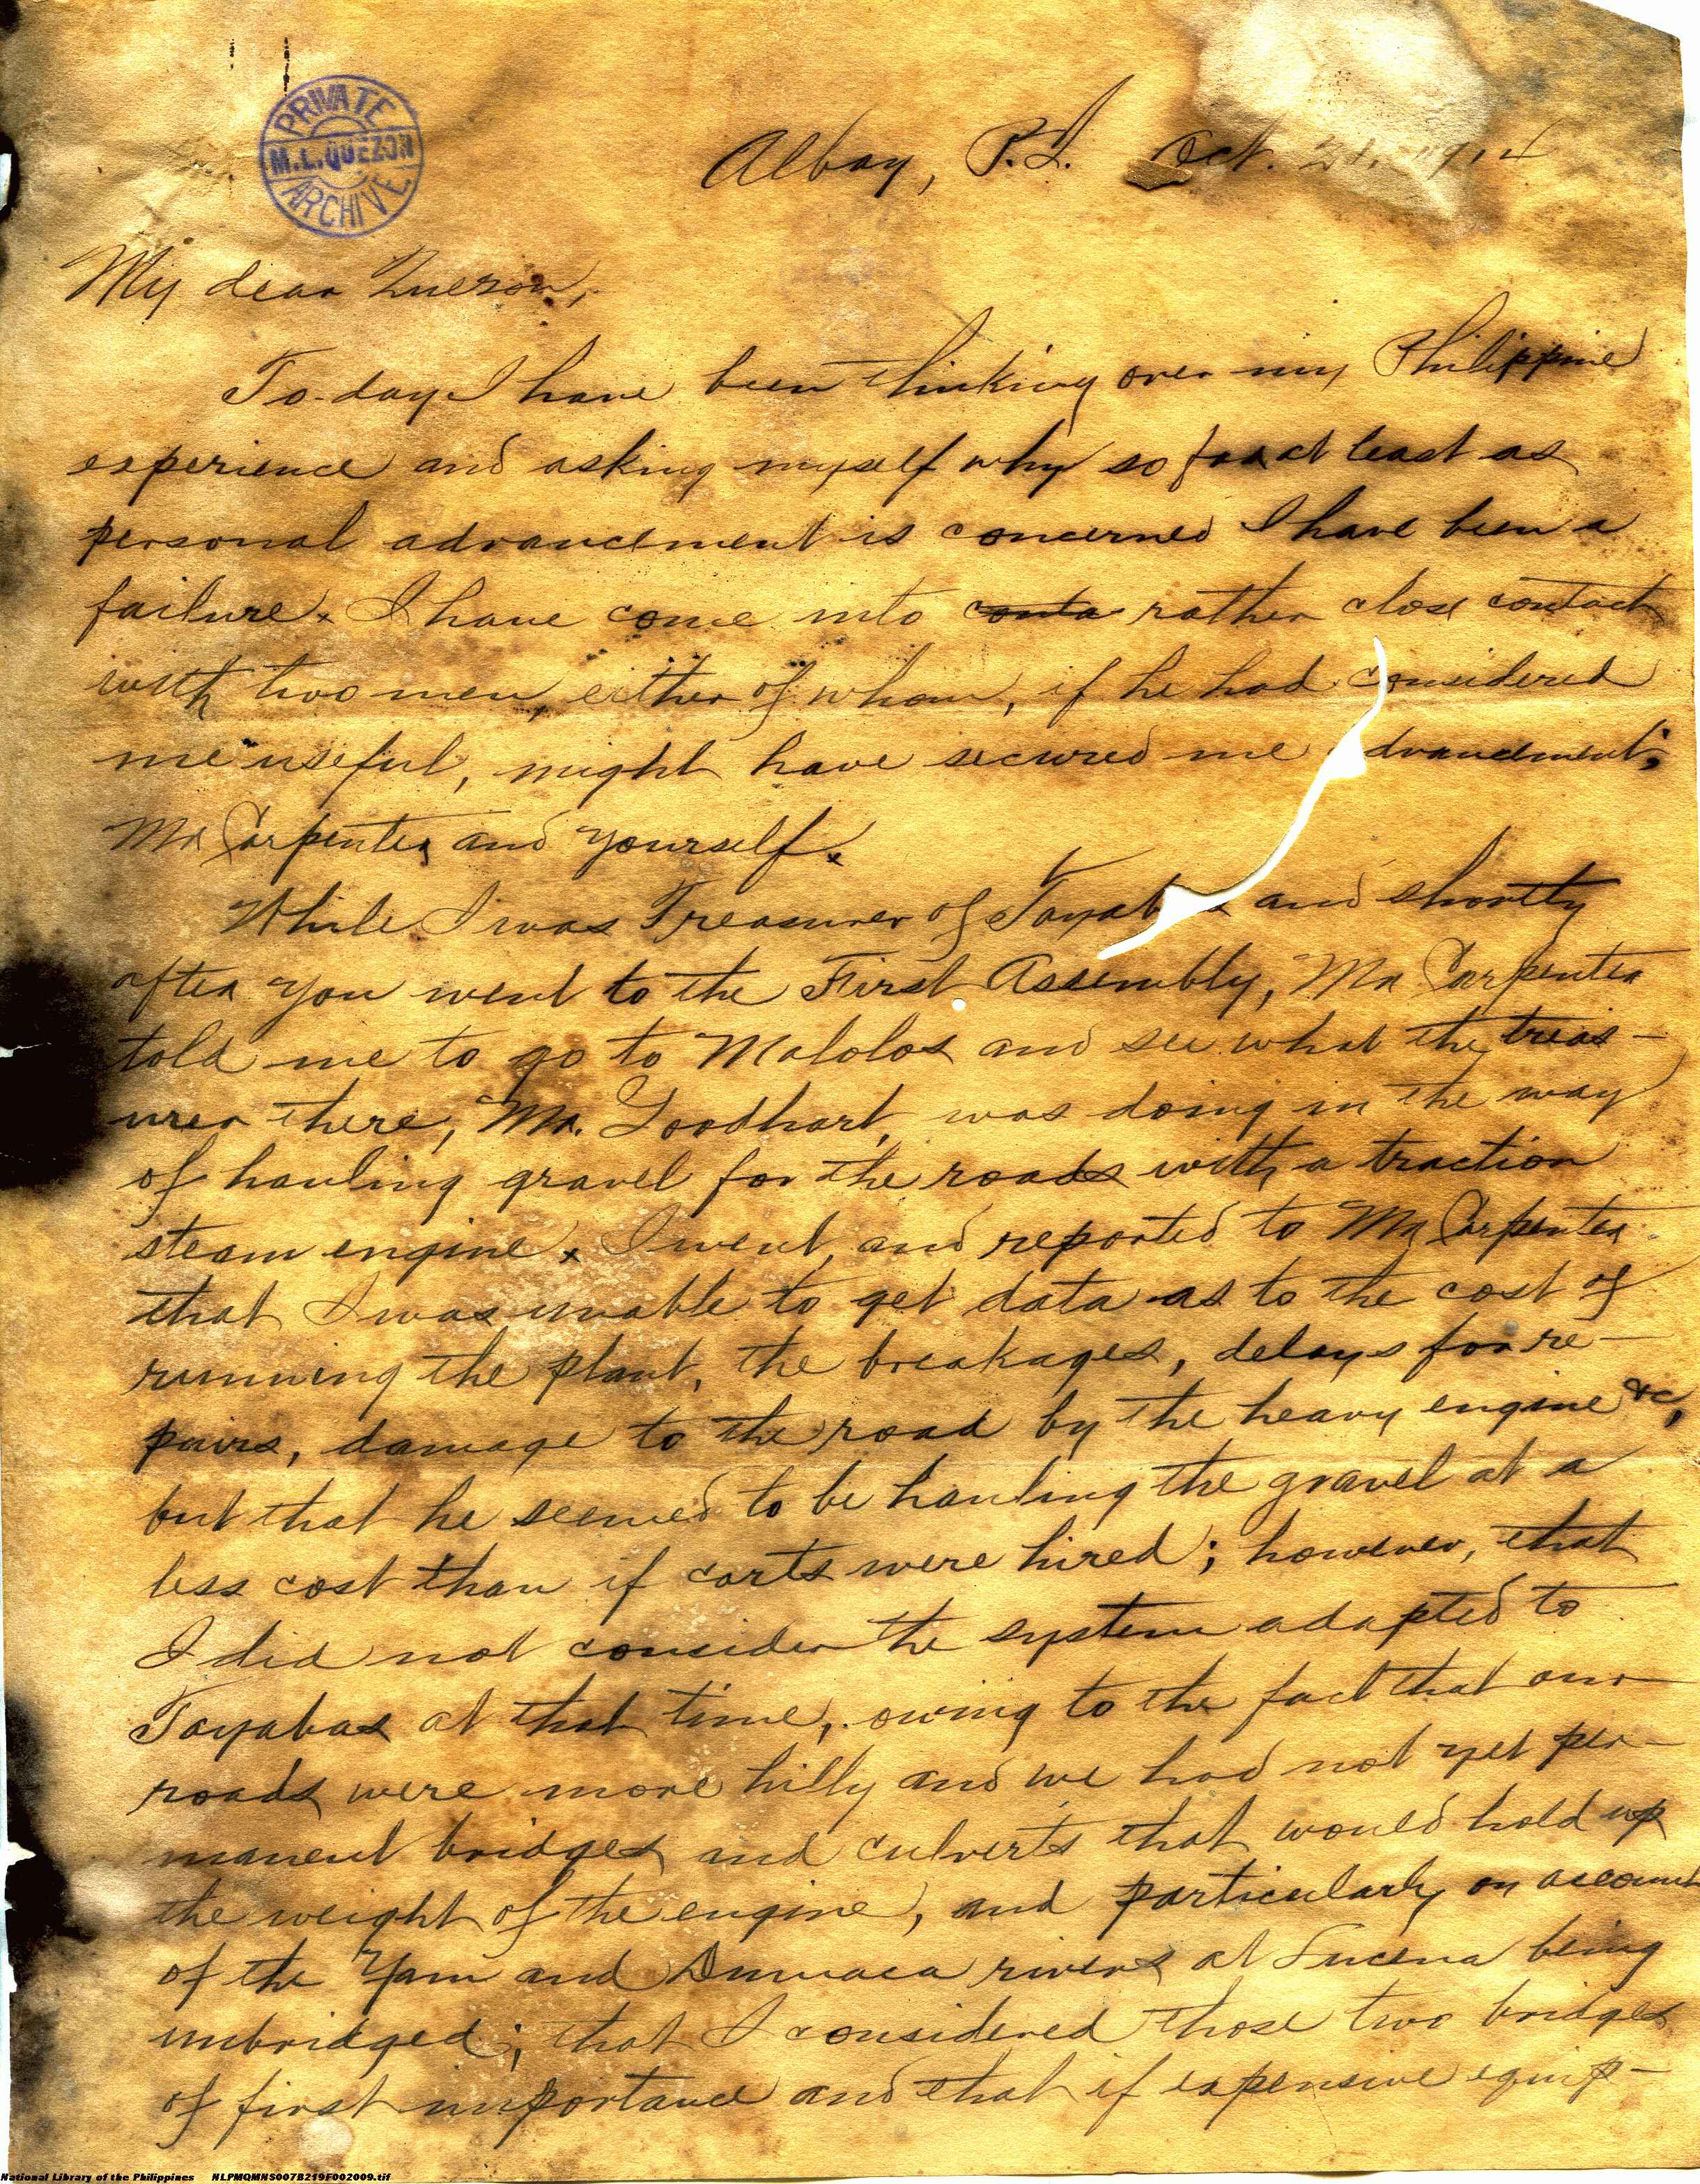 PRIVATE
M.L. QUEZON
ARCHIVE
Albay, P.I. Oct. 21, 191
My dear Quezon,
To-day I have been thinking over my Philippine
experience and asking myself why so far at least as
personal advancement is concerned I have been a
failure. I have come into conta rather close contact
with two men, either of whom, if he had considered
me useful, might have secured me advancement;
Mr Carpenter and yourself.
While I was Treasurer of Tayabas and shortly
after you went to the First Assembly, Mr Carpenter
told me to go to Malolos and see what the treas-
urer there, Mr. Goodhart, was doing in the way
of hauling gravel for the roads with a traction
steam engine. I went, and reported to Mr Carpenter
that I was unable to get data as to the cost of
running the plant, the breakages, delays for re-
pairs, damage to the road by the heavy engine &c,
but that he seemed to be hauling the gravel at a
less cost than if carts were hired; however, that
I did not consider the system adapted to
Tayabas at that time, owing to the fact that our
roads were more hilly and we had not yet per-
manent bridges and culverts that would hold up
the weight of the engine, and particularly on account
of the Yam and Dumaca rivers at Lucena being
unbridged; that I considered those two bridges
of first importance and that if expensive equip-
National Library of the Philippines NLPMQMNS007B219F002009.tif